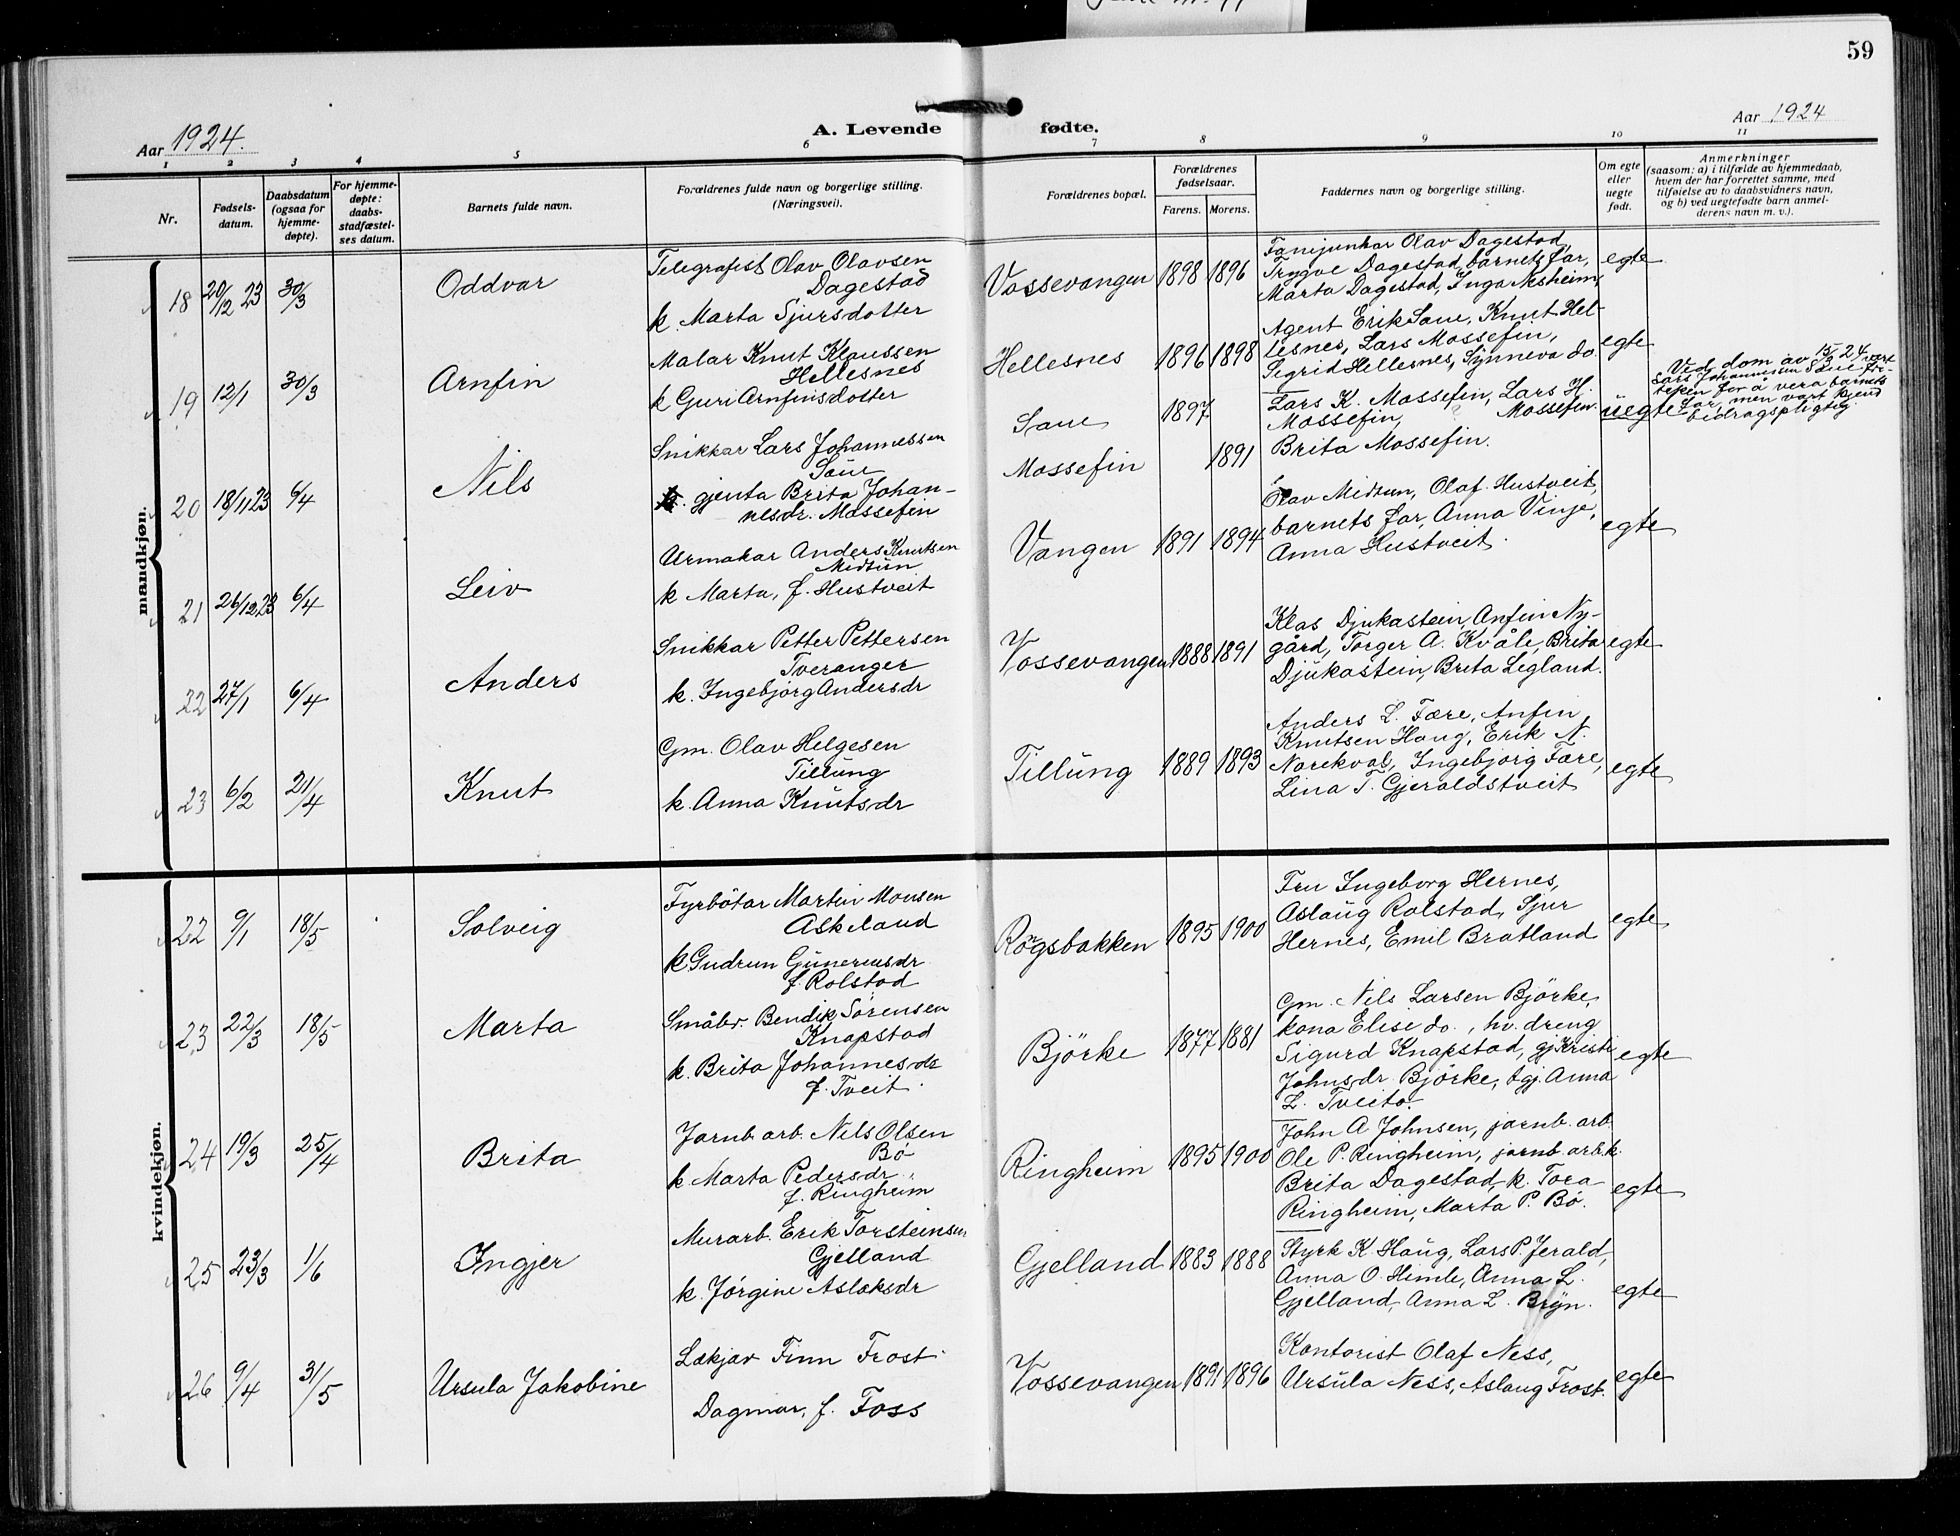 59
Aar 1924.
A. Levende
fødte.
Aar 1924
1 2 3 4 5 6 7 8 9 10 11
Nr.
Fødsels-
datum.
Daabsdatum
(ogsaa for
hjemme-
døpte).
For hjemme-
døpte:
daabs-
stadfæstel-
ses datum.
Barnets fulde navn.
Forældrenes fulde navn og borgerlige stilling.
(Næringsvei).
Forældrenes bopæl.
Forældrenes
fødselsaar.
Farens. Morens.
Faddernes navn og borgerlige stilling.
Om egte
eller
uegte
født.
Anmerkninger
(saasom: a) i tilfælde av hjemmedaab,
hvem der har forrettet samme, med
tilføielse av to daabsvidners navn,
og b) ved uegtefødte barn anmel-
derens navn m. v.).
mandkjøn.
18 20/12 23 30/3 Oddvar
Telegrafist Olav Olavsen
Dagestad
k. Marta Sjursdotter
Vossevangen 1898 1896
Fanejunkar Olav Dagestad,
Trygve Dagestad, barnets far,
Marta Dagestad, Inga Nesheim,
egte
19 12/1 30/3 Arnfin
Malar Knut Klaussen
Hellesnes
k Guri Arnfinsdotter
Hellesnes 1896 1898
Agent Erik Saue, Knut Hel-
lesnes, Lars Mossefin,
Sigrid Hellesnes, Synneva do.
egte
20 18/11,23 6/4 Nils
Snikkar Lars Johannessen
Saue
gjenta Brita Johan-
nesdr. Mossefin
Saue 1897
Mossefin 1891
Lars K. Mossefin, Lars H.
Mossefin, Mossefin.
Brita Mossefin.
uegte
Ved dom av 15/3 24 vart
Lars Johannessen Saue fri-
teken for å vera barnets
far, men vart kjend
bidragspligtig.
21 26/12,23 6/4 Leiv
Urmakar Anders Knutsen
Midtun
k Marta, f. Hustveit
Vangen 1891 1894
Olav Midtun, Olaf Hustveit,
barnets far, Anna Vinje,
Anna Hustveit.
egte
22 27/1 6/4 Anders
Snikkar Petter Pettersen
Tveranger
k. Ingebjorg Andersdr
Vossevangen 1888 1891
Klas Djukastein, Anfin Ny-
gård, Torger A. Kvåle, Brita
Djukastein, Brita Legland.
egte
23 6/2 21/4 Knut
Gm. Olav Helgesen
Tillung
k. Anna Knutsdr
Tillung 1889 1893
Anders L. Fære, Anfin
Knutsen Haug, Erik N.
Norekval, Ingebjorg Fære,
Lina T. Gjeraldstveit
egte
kvindekjøn.
22 9/1 18/5 Solveig
Fyrbötar Martin Monsen
Askeland
k Gudrun Gunerusdr.
f. Rolstad
Rögsbakken 1895 1900
Fru Ingeborg Hernes,
Aslaug Rolstad, Sjur
Hernes, Emil Bratland
egte
23 22/3 18/5 Marta
Småbr. Bendik Sörensen
Knapstad
k. Brita Johannesdr
f. Tveit.
Björke 1877 1881
Gm. Nils Larsen Björke,
kona Elise do., hv. dreng
Sigurd Knapstad, gj. Kristi
Johnsdr Björke, tgj. Anna
L. Tveito.
egte
24 19/3 25/4 Brita
Jarnb. arb. Nils Olsen
Bö
k Marta Pedersdr.
f. Ringheim
Ringheim 1895 1900
John A Johnsen, jarnb. arb.
Ole P. Ringheim, jarnb. arb. k.
Brita Dagestad, k. Tora
Ringheim, Marta P. Bö.
egte
25 23/3 1/6 Ingjer
Murarb. Erik Torsteinsen
Gjelland
k. Jörgine Aslaksdr
Gjelland 1883 1888
Styrk K. Haug, Lars P. Jerald,
Anna O. Himle, Anna L.
Gjelland, Anna L. Bryn.
egte
26 9/4 31/5 Ursula Jakobine
Lækjar Finn Frost.
Dagmar, f. Foss
Vossevangen 1891 1896
Kontorist Olaf Ness,
Ursula Ness, Aslaug Frost.
egte